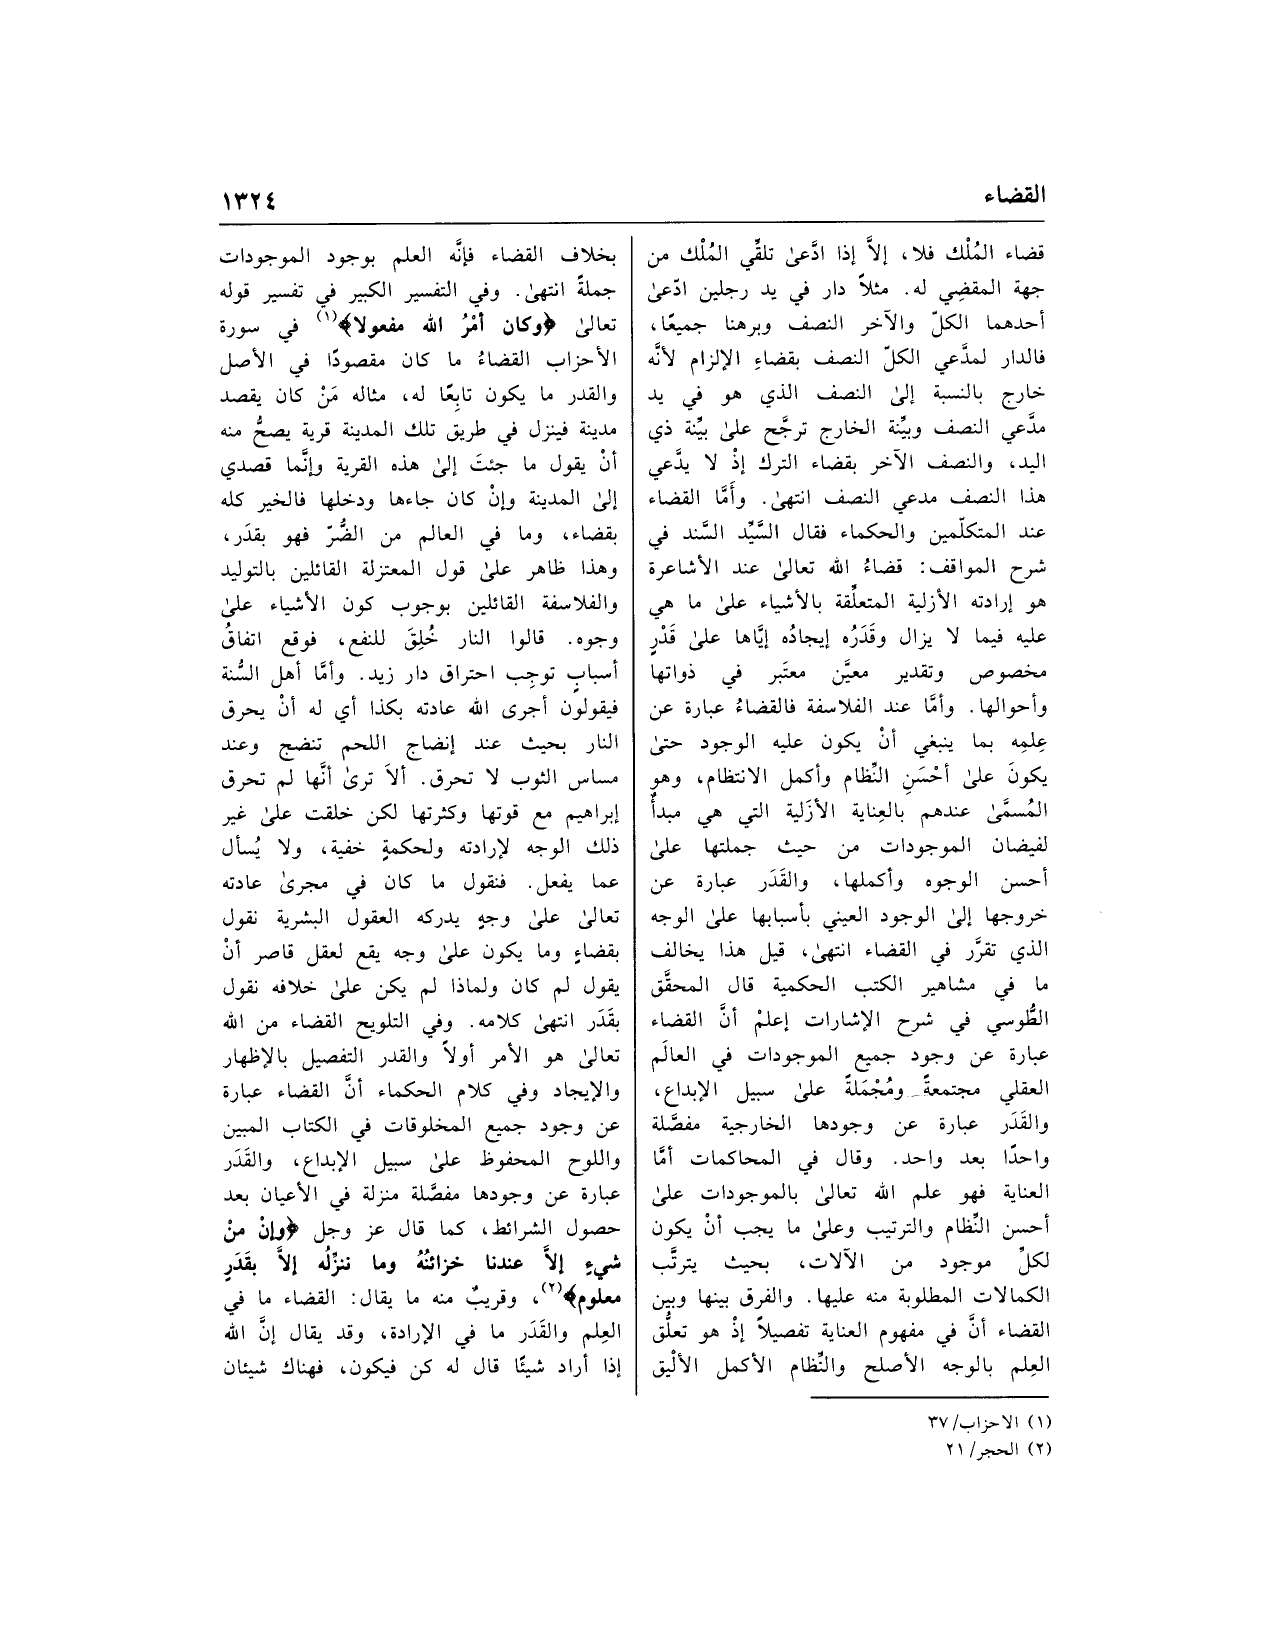 القضاء
١٣٢٤
قضاء المُلْك فلا، إلاَّ إذا ادَّعىٰ تلقِّي المُلْك من
جهة المقضِي له. مثلاً دار في يد رجلين ادّعىٰ
أحدهما الكلّ والآخر النصف وبرهنا جميعًا،
فالدار لمدَّعي الكلّ النصف بقضاءِ الإلزام لأنَّه
خارج بالنسبة إلىٰ النصف الذي هو في يد
مدَّعي النصف وبيِّنة الخارج ترجَّح علىٰ بيِّنة ذي
اليد، والنصف الآخر بقضاء الترك إذْ لا يدَّعي
هذا النصف مدعي النصف انتهىٰ. وأَمَّا القضاء
عند المتكلّمين والحكماء فقال السَّيِّد السَّند في
شرح المواقف: قضاءُ الله تعالىٰ عند الأشاعرة
هو إرادته الأزلية المتعلِّقة بالأشياء علىٰ ما هي
عليه فيما لا يزال وقَدَرُه إيجادُه إيَّاها علىٰ قَدْرٍ
مخصوص وتقدير معيَّن معتَبر في ذواتها
وأحوالها. وأمَّا عند الفلاسفة فالقضاءُ عبارة عن
عِلمِه بما ينبغي أنْ يكون عليه الوجود حتىٰ
يكونَ علىٰ أحْسَنِ النِّظام وأكمل الانتظام، وهو
المُسمَّىٰ عندهم بالعِناية الأزَلية التي هي مبدأٌ
لفيضان الموجودات من حيث جملتها علىٰ
أحسن الوجوه وأكملها، والقَدَر عبارة عن
خروجها إلىٰ الوجود العيني بأسبابها علىٰ الوجه
الذي تقرَّر في القضاء انتهىٰ، قيل هذا يخالف
ما في مشاهير الكتب الحكمية قال المحقَّق
الطُّوسي في شرح الإشارات إعلمْ أنَّ القضاء
عبارة عن وجود جميع الموجودات في العالَم
العقلي مجتمعةً ومُجْمَلةً علىٰ سبيل الإبداع،
والقَدَر عبارة عن وجودها الخارجية مفصَّلة
واحدًا بعد واحد. وقال في المحاكمات أمَّا
العناية فهو علم الله تعالىٰ بالموجودات علىٰ
أحسن النِّظام والترتيب وعلىٰ ما يجب أنْ يكون
لكلِّ موجود من الآلات، بحيث يترتَّب
الكمالات المطلوبة منه عليها. والفرق بينها وبين
القضاء أنَّ في مفهوم العناية تفصيلاً إذْ هو تعلُّق
العِلم بالوجه الأصلح والنِّظام الأكمل الألْيق
بخلاف القضاء فإنَّه العلم بوجود الموجودات
جملةً انتهىٰ. وفي التفسير الكبير في تفسير قوله
تعالىٰ ﴿وكان أمْرُ الله مفعولا﴾(١) في سورة
الأحزاب القضاءُ ما كان مقصودًا في الأصل
والقدر ما يكون تابِعًا له، مثاله مَنْ كان يقصد
مدينة فينزل في طريق تلك المدينة قرية يصحُّ منه
أنْ يقول ما جئتَ إلىٰ هذه القرية وإنَّما قصدي
إلىٰ المدينة وإنْ كان جاءها ودخلها فالخير كله
بقضاء، وما في العالم من الضُّرّ فهو بقدَر،
وهذا ظاهر علىٰ قول المعتزلة القائلين بالتوليد
والفلاسفة القائلين بوجوب كون الأشياء علىٰ
وجوه. قالوا النار خُلِقَ للنفع، فوقع اتفاقُ
أسبابٍ توجِب احتراق دار زيد. وأمَّا أهل السُّنة
فيقولون أجرى الله عادته بكذا أي له أنْ يحرق
النار بحيث عند إنضاج اللحم تنضج وعند
مساس الثوب لا تحرق. ألاَ ترىٰ أنَّها لم تحرق
إبراهيم مع قوتها وكثرتها لكن خلقت علىٰ غير
ذلك الوجه لإرادته ولحكمةٍ خفية، ولا يُسأل
عما يفعل. فنقول ما كان في مجرىٰ عادته
تعالىٰ علىٰ وجهٍ يدركه العقول البشرية نقول
بقضاءٍ وما يكون علىٰ وجه يقع لعقل قاصر أنْ
يقول لم كان ولماذا لم يكن علىٰ خلافه نقول
بقَدَر انتهىٰ كلامه. وفي التلويح القضاء من الله
تعالىٰ هو الأمر أولاً والقدر التفصيل بالإظهار
والإيجاد وفي كلام الحكماء أنَّ القضاء عبارة
عن وجود جميع المخلوقات في الكتاب المبين
واللوح المحفوظ علىٰ سبيل الإبداع، والقَدَر
عبارة عن وجودها مفصَّلة منزلة في الأعيان بعد
حصول الشرائط، كما قال عز وجل ﴿وإنْ منْ
شيءٍ إلاَّ عندنا خزائنُهُ وما ننزِّلُه إلاَّ بقَدَرٍ
معلوم﴾(٢)، وقريبٌ منه ما يقال: القضاء ما في
العِلم والقَدَر ما في الإرادة، وقد يقال إنَّ الله
إذا أراد شيئًا قال له كن فيكون، فهناك شيئان
(١) الاحزاب/ ٣٧
(٢) الحجر/ ٢١